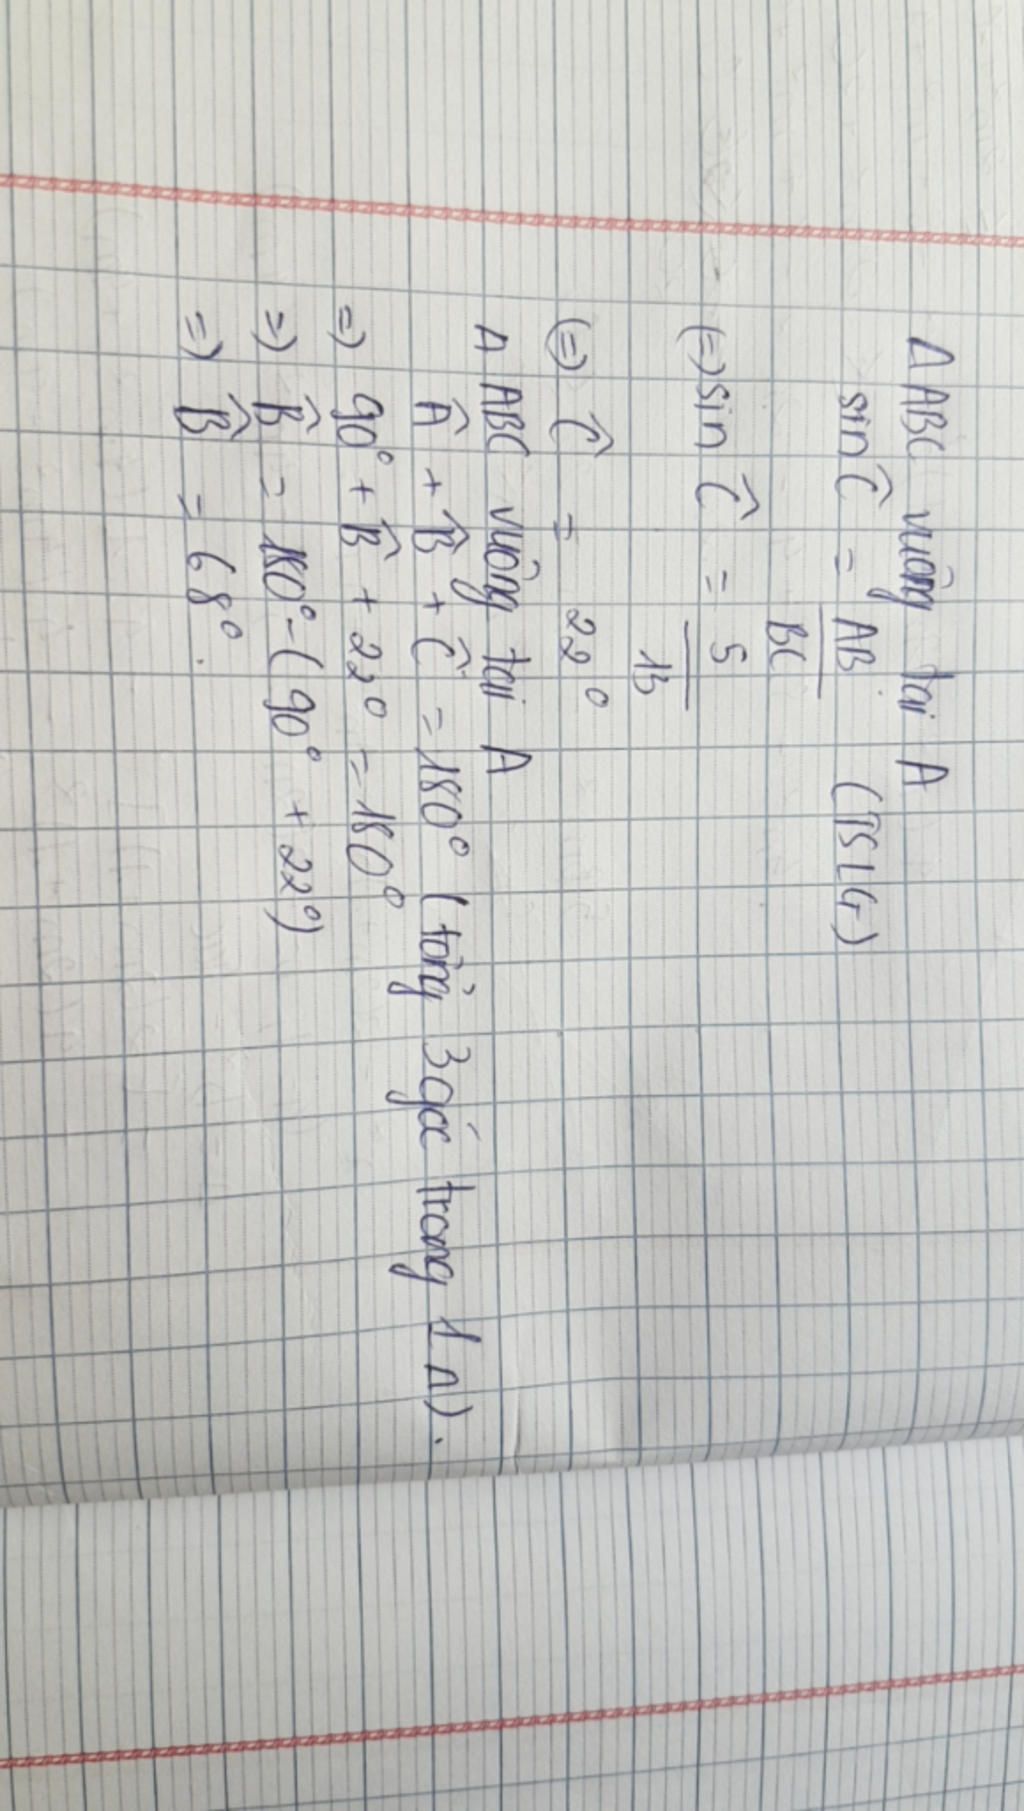 Δ ABC vuông tại A
sin Ĉ = AB/BC (TSLG)
(=) sin Ĉ = 5/13
(=) Ĉ = 22°
Δ ABC vuông tại A
Â + B̂ + Ĉ = 180° (tổng 3 góc trong 1 Δ).
=) 90° + B̂ + 22° = 180°
=) B̂ = 180° - (90° + 22°)
=) B̂ = 68°.